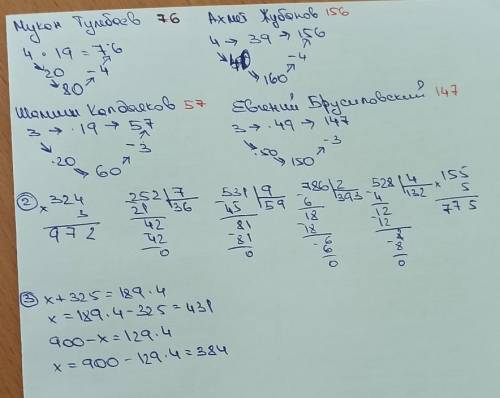 Мукан Тулебаев 76
4 · 19 = 76
20 - 4
80
Ахмет Жубанов 156
4 → 39 → 156
40 - 4
160
Шамши Калдаяков 57
3 → · 19 → 57
· 20 - 3
60
Евгений Брусиловский 147
3 → · 49 → 147
· 50 - 3
150
② × 324
3
972
252 | 7
21 36
42
42
0
531 | 9
- 45 59
81
- 81
0
786 | 2
- 6 393
18
- 18
6
- 6
0
528 | 4
- 4 132
12
- 12
8
- 8
0
× 155
5
775
③ x + 325 = 189 · 4
x = 189 · 4 - 325 = 431
900 - x = 129 · 4
x = 900 - 129 · 4 = 384